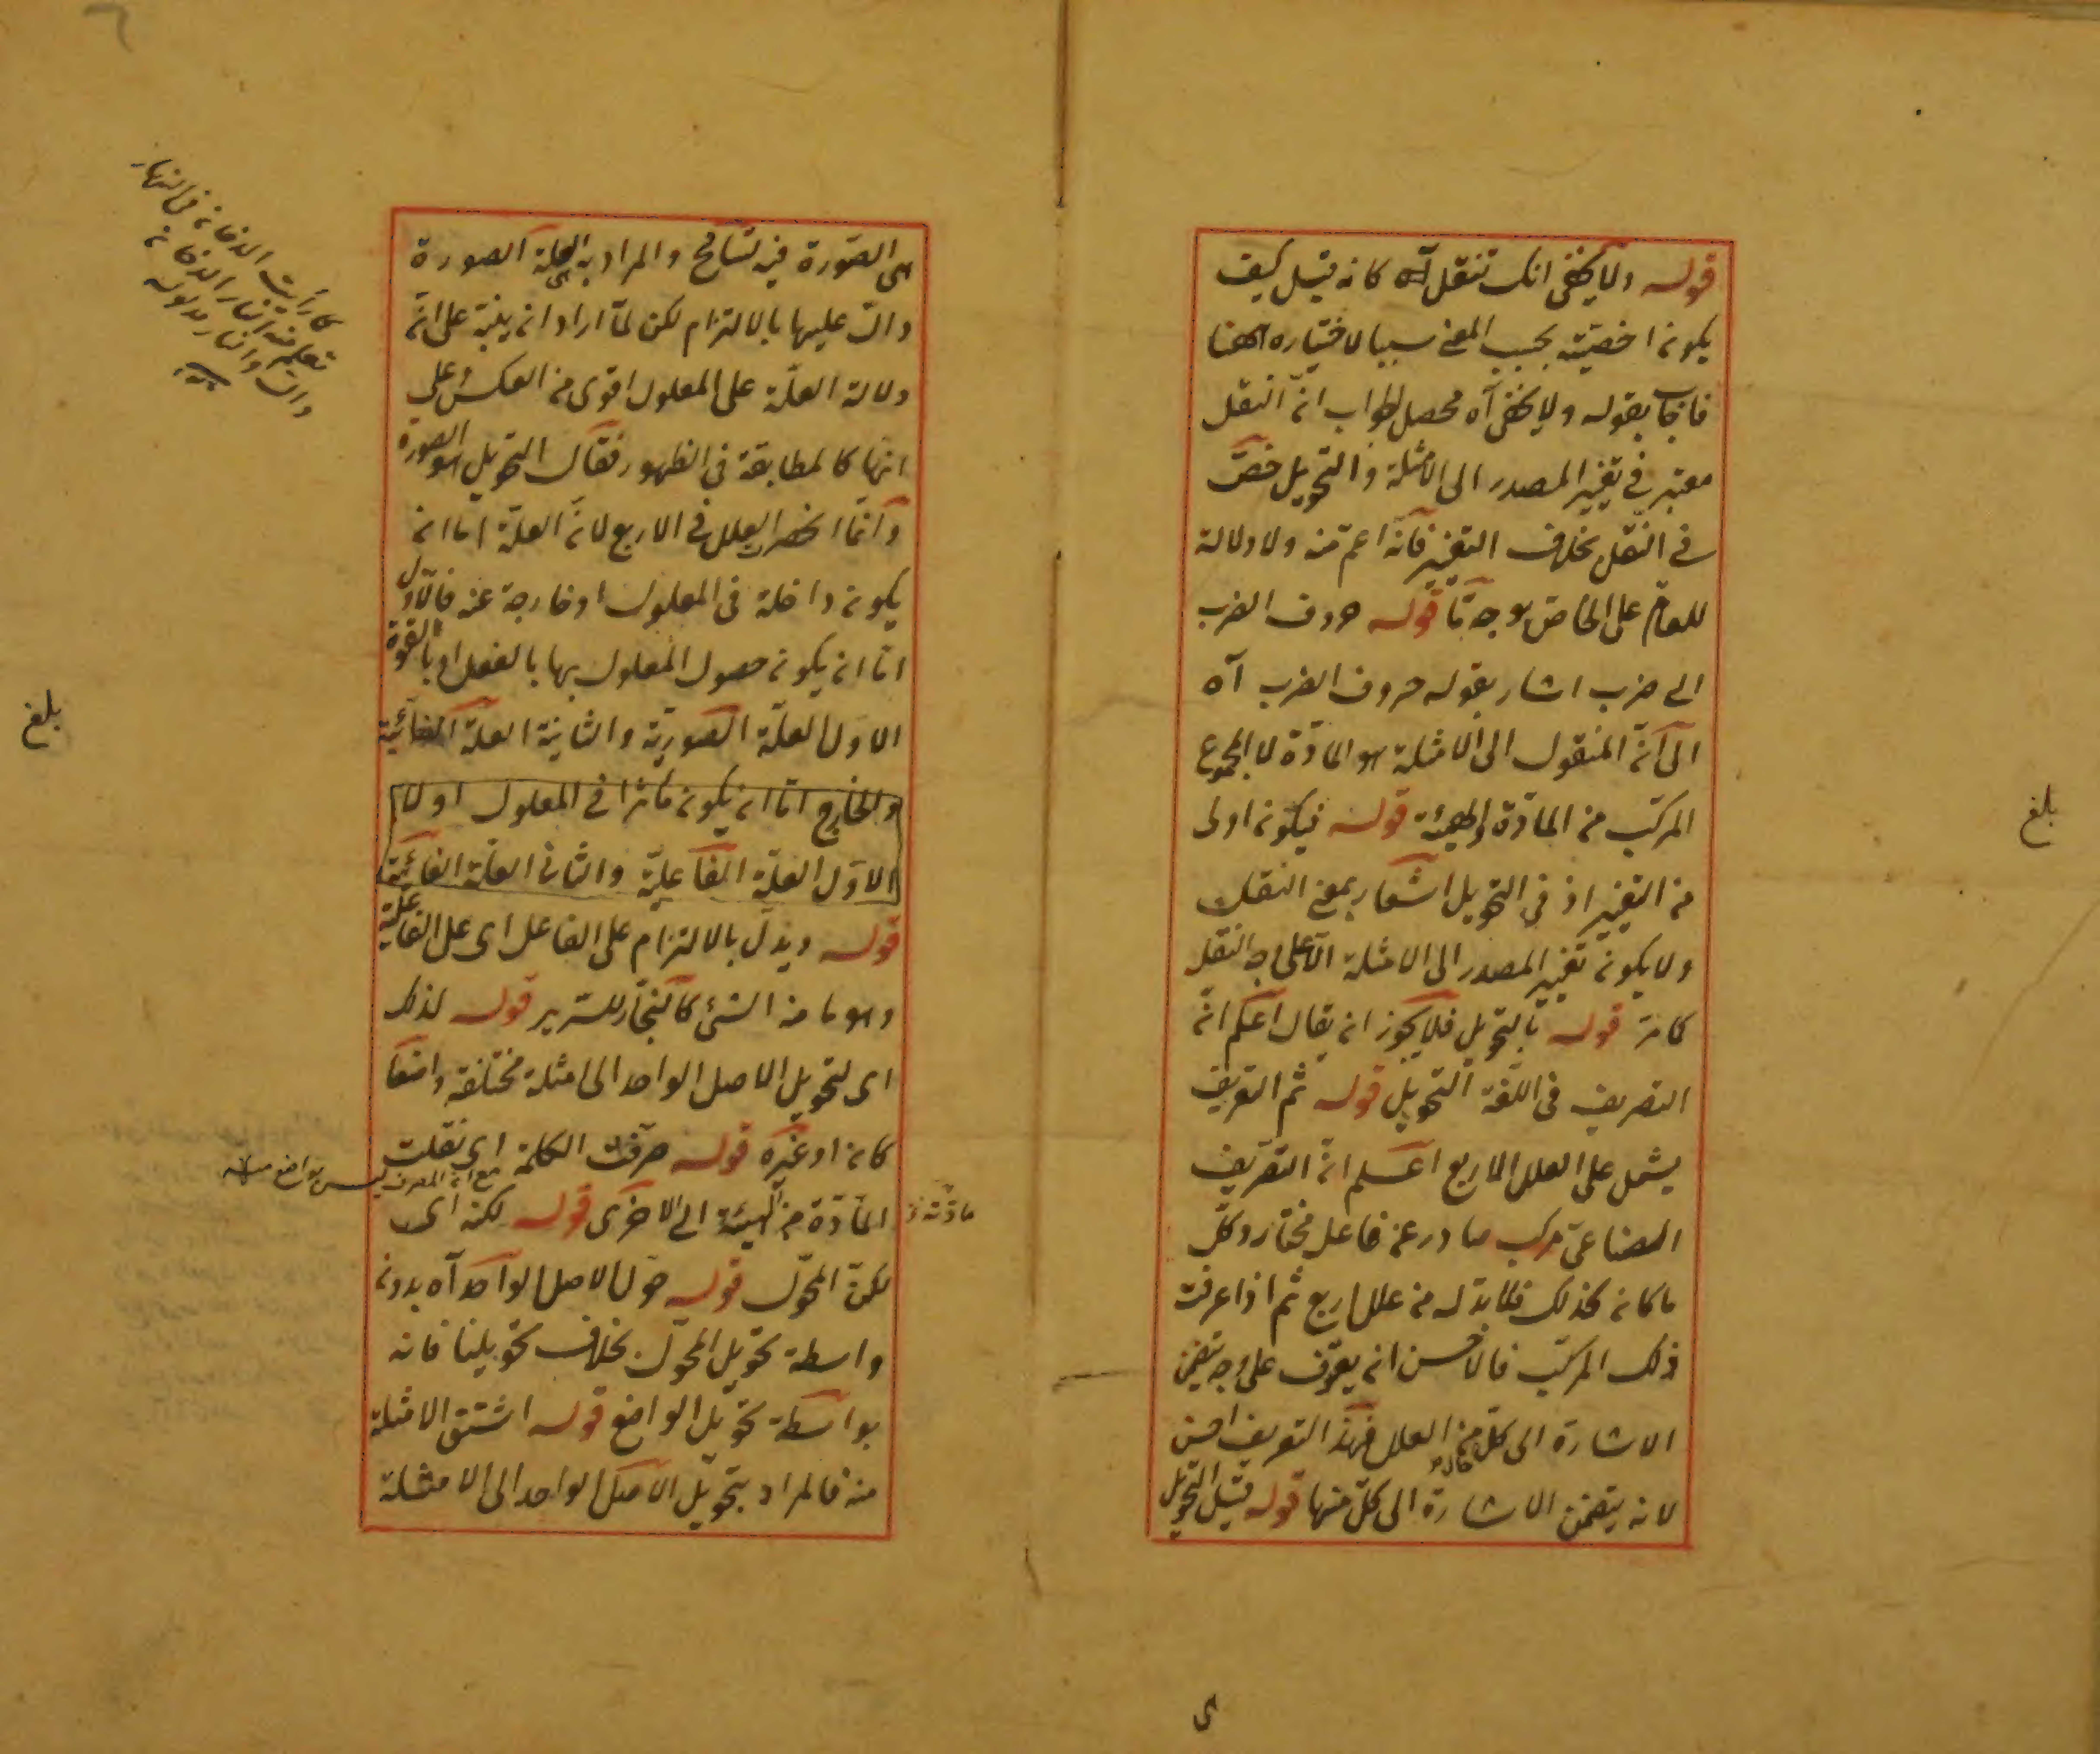 قوله ولا يخفى انك تنقل آه كانه قيل كيف
يكون اخصيته بحسب المعنى سببا لاختياره ههنا
فاجاب بقوله ولا يخفى آه محصل الجواب انّ النقل
معتبر في تغيير المصدر الى الامثلة والتحويل خصّ
في النقل بخلاف التغيير فانّه اعم منه ولا دلالة
للعام على الخاص بوجه ما قوله حروف الضرب
الى ضرب اشار بقوله حروف الضرب آه
الى انّ المنقول الى الامثلة هو المادّة لا المجموع
المركب من المادّة والهيئة قوله فيكون اولى
من التغيير اذ في التحويل اشعار بمعنى النقل
ولا يكون تغيير المصدر الى الامثلة الّا على وجه النقل
كما مرّ قوله بالتحويل فلا يجوز ان يقال اعلم انّ
التصريف في اللغة التحويل قوله ثم التعريف
يشمل على العلل الاربع اعلم انّ التصريف
الصناعىّ مركب صادر عن فاعل مختار وكلّ
ما كان كذلك فلا بدّ له من علل اربع ثم اذا عرفت
ذلك المركب فالاحسن ان يعرّف على وجه يتضمن
الاشارة الى كلّ من العلل فهذا التعريف احسن
لانه يتضمن الاشارة الى كلّ منها قوله قيل التحويل
ى
بلغ
هي الصّورة فيه تسامح والمراد به العلة الصورة
دالّ عليها بالالتزام لكن لمّا اراد ان ينبّه على انّ
دلالة العلّة على المعلول اقوى من العكس وعلى
انها كالمطابقة في الظهور فقال التحويل هو الصورة
وانّما انحصرت العلل في الاربع لانّ العلّة امّا ان
يكون داخلة في المعلول او خارجة عنه فالاوّل
امّا ان يكون حصول المعلول بها بالفعل او بالقوة
الاوّل العلّة الصوريّة والثانية العلّة الغائيّة
والخارج امّا ان يكون مأثرا في المعلول او لا
الاوّل العلّة الفاعليّة والثاني العلّة الغائيّة
قوله ويدلّ بالالتزام على الفاعل اى على الفاعلية
وهو ما منه الشئ كالنجّار للسّرير قوله لذلك
اى لتحويل الاصل الواحد الى امثلة مختلفة واضعا
كان او غيره قوله صرّفت الكلمة اى نقلت
المادّة من الهيئة الى الاخرى قوله لكنه اى
لكنّ المحوّل قوله حوّل الاصل الواحد آه بدون
واسطة تحويل المحوّل بخلاف تحويلنا فانه
بواسطة تحويل الواضع قوله اشتق الامثلة
منه فالمراد بتحويل الاصل الواحد الى الامثلة
كما رأيت الدخان في النهار
تعلم منه النار الدخان
دالّ والنار مدلول
مع انّ المصرف ليس بواضع
مادّته
بلغ
٦